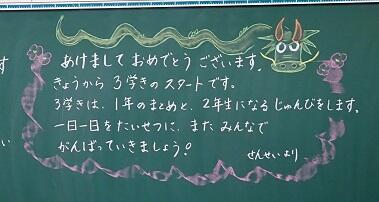 あけまして おめでとう ございます。
きょうから 3学きの スタートです。
3学きは、1年のまとめと、2年生になる じゅんびをします。
一日一日を たいせつに、また みんなで
がんばっていきましょう!
せんせいより
す
い